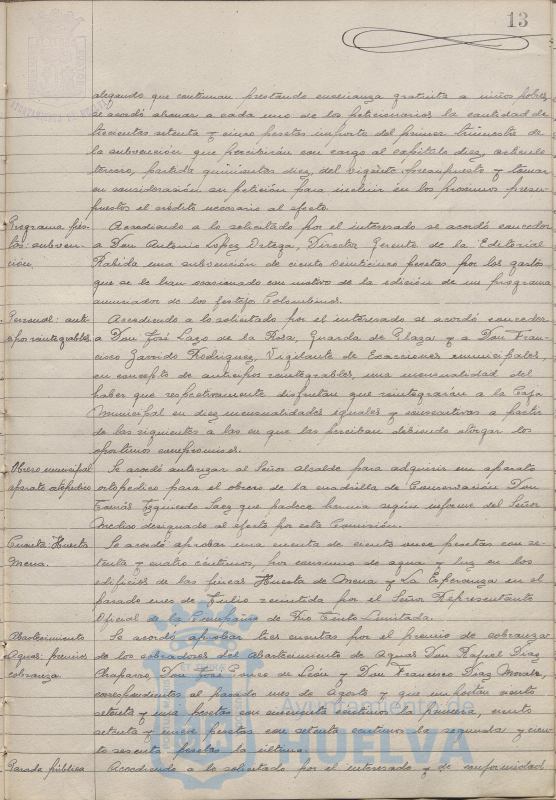 13
alegando que continuan prestando enseñanza gratuita a niños pobres,
se acordó abonar a cada uno de los peticionarios la cantidad de
trescientas setenta y cinco pesetas importe del primer trimestre de
la subvención que percibirán con cargo al capítulo diez, artículo
tercero, partida quinientas diez, del vigente Presupuesto y tomar
en consideración su petición para incluir en los próximos presu-
puestos el crédito necesario al efecto.
Programa fies-
tas: subven-
ción.
Accediendo a lo solicitado por el interesado se acordó conceder
a Don Antonio López Ortega, Director Gerente de la Editorial
Rábida una subvención de ciento veinticinco pesetas por los gastos
que se le han ocasionado con motivo de la edición de un programa
anunciador de los festejos Colombinos.
Personal: anti-
cipos reintegrables.
Accediendo a lo solicitado por el interesado se acordó conceder
a Don José Lazo de la Rosa, Guarda de Plazas y a Don Fran-
cisco Garrido Rodriguez, Vigilante de Exacciones municipales,
en concepto de anticipos reintegrables, una mensualidad del
haber que respectivamente disfrutan que reintegrarán a la Caja
Municipal en diez mensualidades iguales y consecutivas a partir
de las siguientes a las en que las perciban debiendo otorgar los
oportunos compromisos.
Obrero municipal
aparato ortopédico
Se acordó autorizar al Señor Alcalde para adquirir un aparato
ortopédico para el obrero de la cuadrilla de Conservación Don
Tomás Izquierdo Saez que padece hernia según informe del Señor
Médico designado al efecto por esta Comisión.
Cuenta: Huerta
Mena.
Se acordó aprobar una cuenta de ciento once pesetas con se-
tenta y cuatro céntimos, por consumo de agua y luz en los
edificios de las fincas Huerta de Mena y La Esperanza en el
pasado mes de Julio remitida por el Señor Representante
Oficial de la Compañía de Rio Tinto Limitada.
Abastecimiento
Aguas: premios
cobranza.
Se acordó aprobar tres cuentas por el premio de cobranza
de los cobradores del Abastecimiento de Aguas Don Rafael Diaz
Chaparro, Don José Ponce de León y Don Francisco Diaz
correspondientes al pasado mes de Agosto y que importan ciento
setenta y una pesetas con cincuenta céntimos la primera, ciento
setenta y pesetas con setenta céntimos la segunda y cien-
to sesenta pesetas la última.
Parada pública
Accediendo a lo solicitado por el interesado y de conformidad
Ayuntamiento de
HUELVA